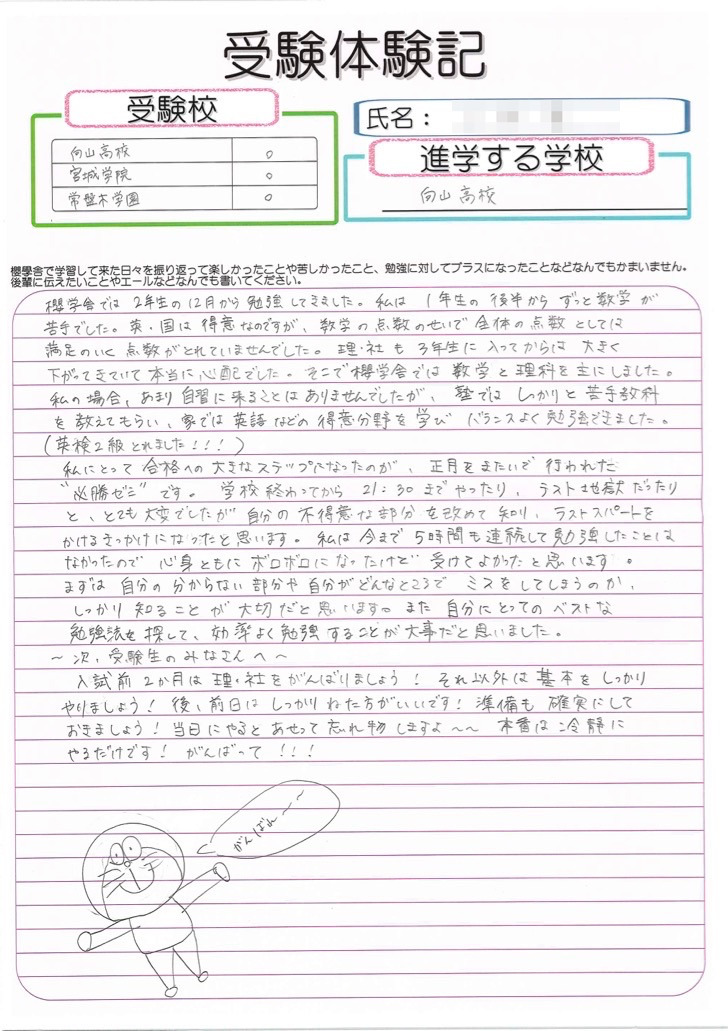 受験体験記
受験校
向山高校 ○
宮城学院 ○
常盤木学園 ○
氏名：
進学する学校
向山高校
櫻學舎で学習して来た日々を振り返って楽しかったことや苦しかったこと、勉強に対してプラスになったことなどなんでもかまいません。
後輩に伝えたいことやエールなどなんでも書いてください。
櫻學舎では 2年生の12月から勉強してきました。私は 1年生の後半からずっと数学が
苦手でした。英・国は得意なのですが、数学の点数のせいで全体の点数としては
満足のいく点数がとれていませんでした。理・社も3年生に入ってからは大きく
下がってきていて本当に心配でした。そこで櫻學舎では数学と理科を主にしました。
私の場合、あまり自習に来ることはありませんでしたが、塾ではしっかりと苦手教科
を教えてもらい、家では英語などの得意分野を学びバランスよく勉強できました。
(英検2級とれました!!!)
私にとって合格への大きなステップになったのが、正月をまたいで行われた
"必勝ゼミ"です。学校終わってから21:30までやったり、ラスト地獄だったり
と、とても大変でしたが自分の不得意な部分を改めて知り、ラストスパートを
かけるきっかけになったと思います。私は今まで5時間も連続して勉強したことは
なかったので心身ともにボロボロになったけど受けてよかったと思います。
まずは自分の分からない部分や自分がどんなところでミスをしてしまうのか、
しっかり知ることが大切だと思います。また自分にとってのベストな
勉強法を探して、効率よく勉強することが大事だと思いました。
～次、受験生のみなさんへ～
入試前2か月は理・社をがんばりましょう！それ以外は基本をしっかり
やりましょう！後、前日はしっかりねた方がいいです！準備も確実にして
おきましょう！当日にやるとあせって忘れ物しますよ～～ 本番は冷静に
やるだけです！がんばって!!!
がんばれ～～